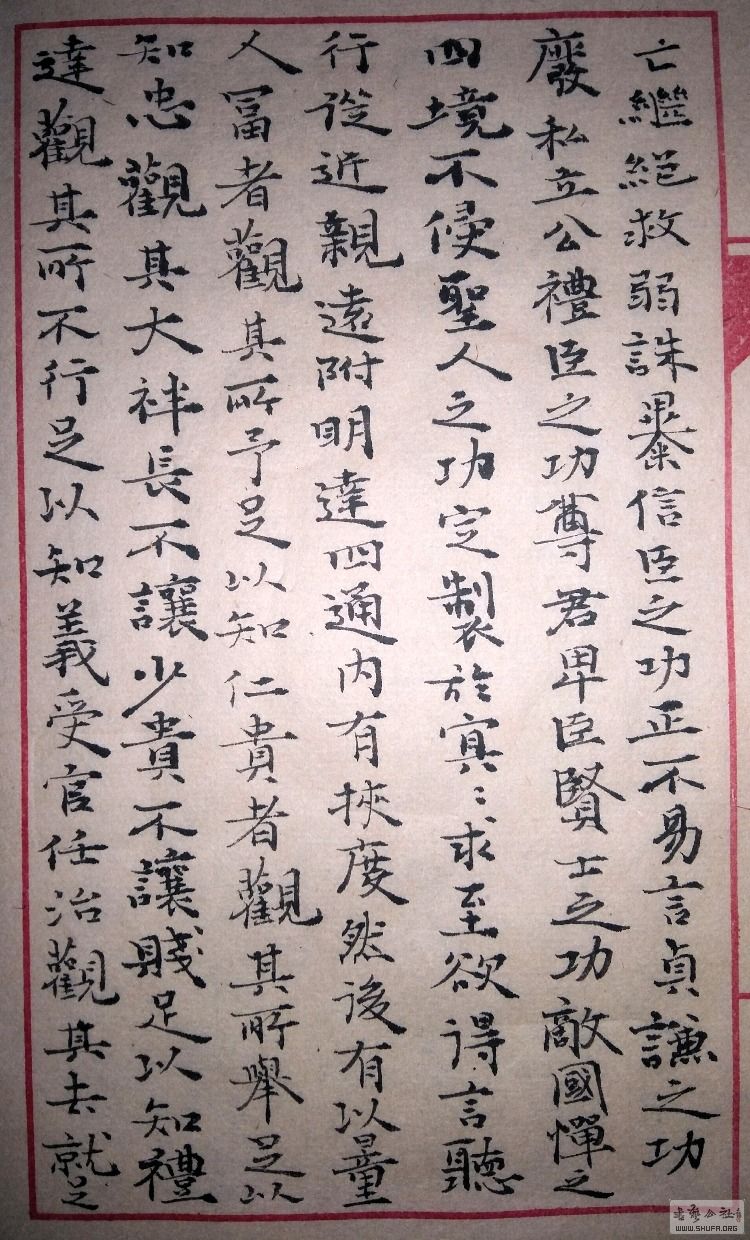 亡繼絕救弱誅暴信臣之功正不易言貞謙之功
廢私立公禮臣之功尊君卑臣賢士之功敵國憚之
四境不侵聖人之功定製於冥〻求至欲得言聽
行從近親遠附明達四通內有挾度然後有以量
人富者觀其所予足以知仁貴者觀其所舉足以
知忠觀其大祥長不讓少貴不讓賤足以知禮
達觀其所不行足以知義受官任治觀其去就足
書藝公社
WWW.SHUFA.ORG